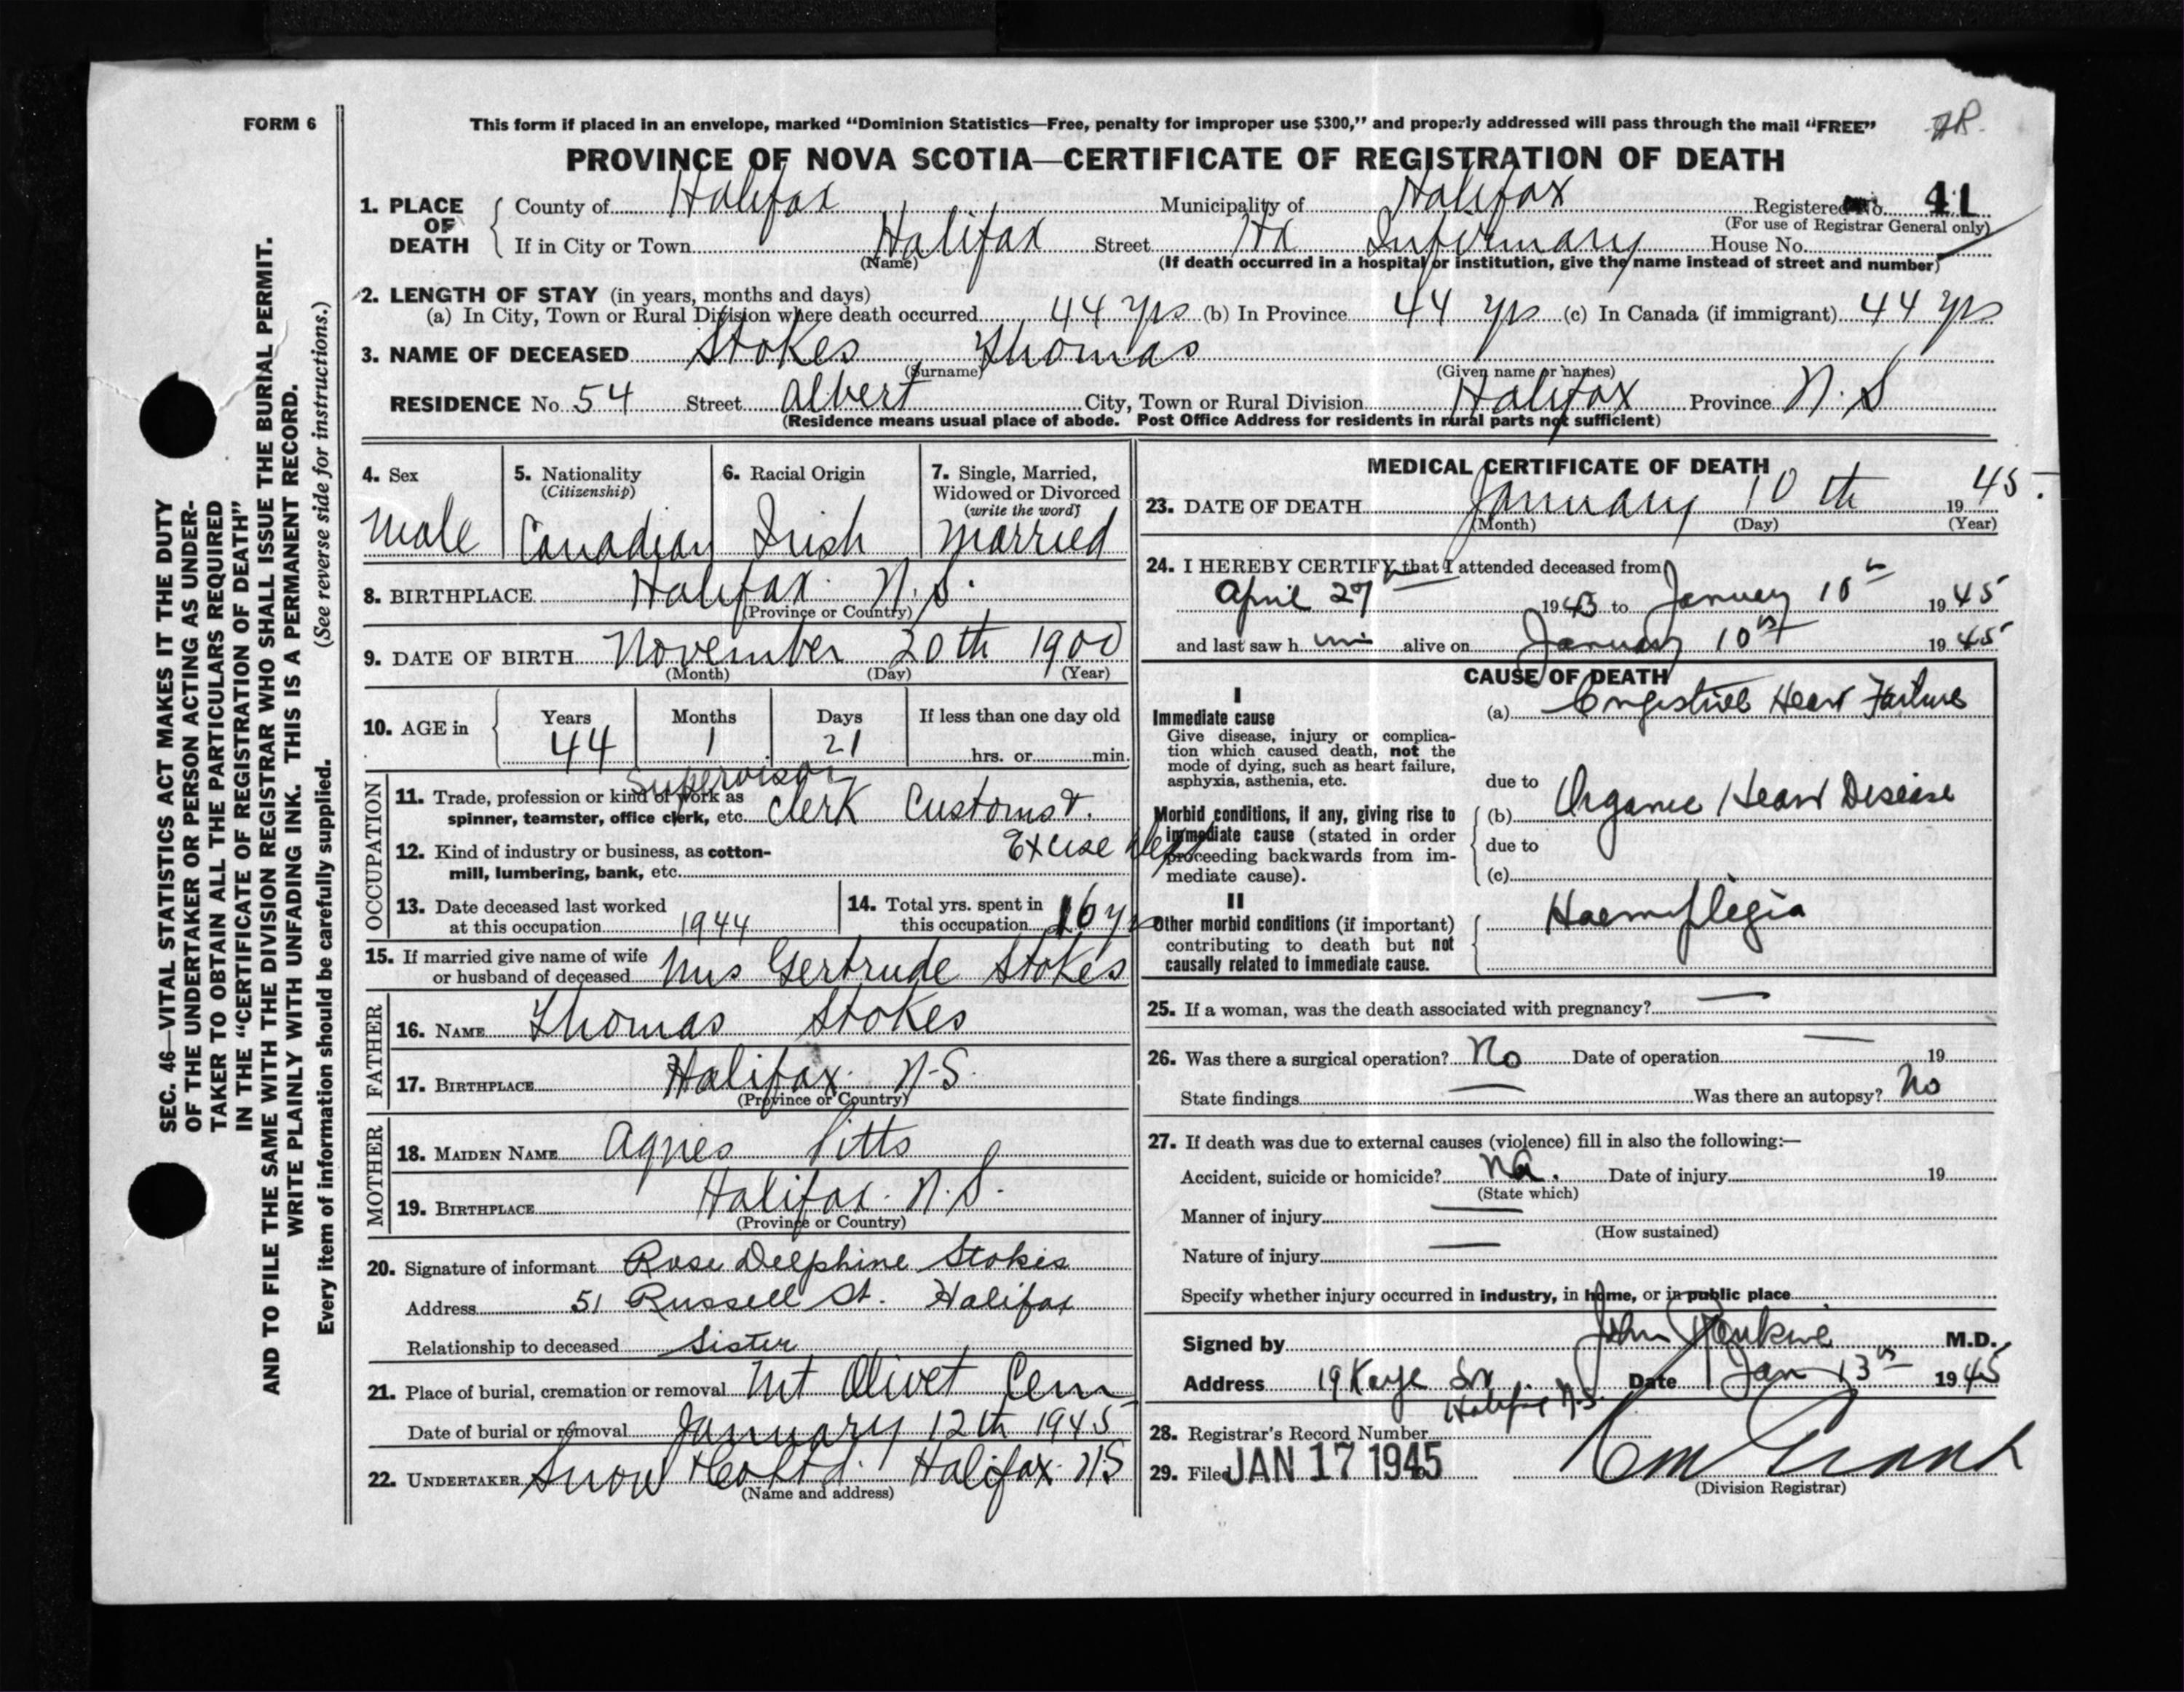 FORM 6
This form if placed in an envelope, marked “Dominion Statistics—Free, penalty for improper use $300,” and properly addressed will pass through the mail “FREE”
PROVINCE OF NOVA SCOTIA—CERTIFICATE OF REGISTRATION OF DEATH
1. PLACE OF DEATH County of Halifax Municipality of Halifax Registered No. 41
(For use of Registrar General only)
If in City or Town Halifax Street Hx Infirmary House No.
(Name) (If death occurred in a hospital or institution, give the name instead of street and number)
2. LENGTH OF STAY (in years, months and days)
(a) In City, Town or Rural Division where death occurred 44 yrs (b) In Province 44 yrs (c) In Canada (if immigrant) 44 yrs
3. NAME OF DECEASED Stokes, Thomas
(Surname) (Given name or names)
RESIDENCE No. 54 Street Albert City, Town or Rural Division Halifax Province N.S
(Residence means usual place of abode. Post Office Address for residents in rural parts not sufficient)
4. Sex
Male
5. Nationality
(Citizenship)
Canadian
6. Racial Origin
Irish
7. Single, Married,
Widowed or Divorced
(write the word)
Married
8. BIRTHPLACE Halifax. N.S.
(Province or Country)
9. DATE OF BIRTH November 20th 1900
(Month) (Day) (Year)
10. AGE in Years Months Days If less than one day old
44 1 21 hrs. or min.
OCCUPATION
Supervisor
11. Trade, profession or kind of work as
spinner, teamster, office clerk, etc. Clerk Customs &.
12. Kind of industry or business, as cotton- Excise Dept
mill, lumbering, bank, etc.
13. Date deceased last worked
at this occupation 1944
14. Total yrs. spent in
this occupation 16 yrs
15. If married give name of wife
or husband of deceased Mrs Gertrude Stokes
FATHER
16. NAME Thomas Stokes
17. BIRTHPLACE Halifax. N.S.
(Province or Country)
MOTHER
18. MAIDEN NAME Agnes Pitts
19. BIRTHPLACE Halifax. N.S.
(Province or Country)
20. Signature of informant Rose Delphine Stokes
Address 51 Russell St. Halifax
Relationship to deceased Sister
21. Place of burial, cremation or removal Mt Olivet Cem
Date of burial or removal January 12th 1945
22. UNDERTAKER Snow & Co Ltd. Halifax. NS
(Name and address)
MEDICAL CERTIFICATE OF DEATH
23. DATE OF DEATH January 10th 1945.
(Month) (Day) (Year)
24. I HEREBY CERTIFY that I attended deceased from
April 27th 1943 to January 10th 1945
and last saw him alive on January 10th 1945
CAUSE OF DEATH
I
Immediate cause
Give disease, injury or complica-
tion which caused death, not the
mode of dying, such as heart failure,
asphyxia, asthenia, etc.
(a) Congestive Heart Failure
due to
Morbid conditions, if any, giving rise to
immediate cause (stated in order
proceeding backwards from im-
mediate cause).
(b) Organic Heart Disease
due to
(c)
II
Other morbid conditions (if important)
contributing to death but not
causally related to immediate cause.
Haemiplegia
25. If a woman, was the death associated with pregnancy? —
26. Was there a surgical operation? No Date of operation — 19
State findings — Was there an autopsy? No
27. If death was due to external causes (violence) fill in also the following:—
Accident, suicide or homicide? No. Date of injury 19
(State which)
Manner of injury —
(How sustained)
Nature of injury —
Specify whether injury occurred in industry, in home, or in public place
Signed by John Rankine M.D.
Address 19 Kaye St. Date Jan 13th 1945
Halifax N.S.
28. Registrar's Record Number
29. Filed JAN 17 1945
(Division Registrar)
SEC. 46—VITAL STATISTICS ACT MAKES IT THE DUTY
OF THE UNDERTAKER OR PERSON ACTING AS UNDER-
TAKER TO OBTAIN ALL THE PARTICULARS REQUIRED
IN THE “CERTIFICATE OF REGISTRATION OF DEATH”
AND TO FILE THE SAME WITH THE DIVISION REGISTRAR WHO SHALL ISSUE THE BURIAL PERMIT.
WRITE PLAINLY WITH UNFADING INK. THIS IS A PERMANENT RECORD.
Every item of information should be carefully supplied. (See reverse side for instructions.)